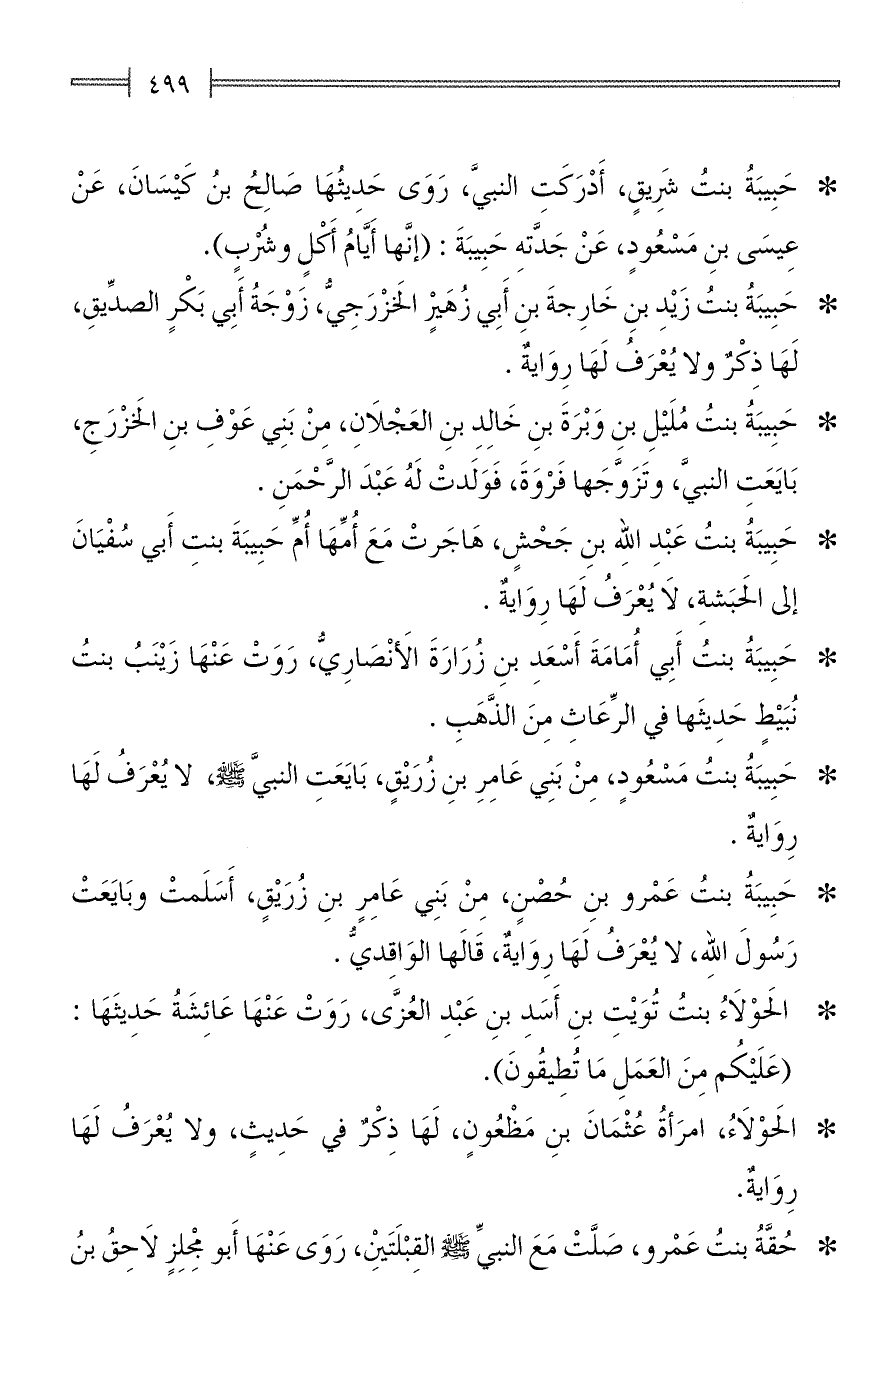 ٤٩٩
* حَبِيبَةُ بنتُ شَرِيقٍ، أَدْرَكَتِ النبيَّ، رَوَى حَدِيثُهَا صَالِحُ بنُ كَيْسَانَ، عَنْ
عِيسَى بنِ مَسْعُودٍ، عَنْ جَدَّتهِ حَبِيبَةَ : (إنَّها أَيَّامُ أَكْلٍ وشُرْبٍ).
* حَبِيبَةُ بنتُ زَيْدِ بنِ خَارِجةَ بنِ أَبي زُهَيْرٍ الخَزْرَجِيُّ، زَوْجَةُ أَبي بَكْرٍ الصدِّيقِ،
لَهَا ذِكْرٌ ولا يُعْرَفُ لَهَا رِوَايةٌ .
* حَبِيبَةُ بنتُ مُلَيْلِ بنِ وَبْرَةَ بنِ خَالِدِ بنِ العَجْلَانِ، مِنْ بَنِي عَوْفِ بنِ الخَزْرَجِ،
بَايَعَتِ النبيَّ، وتَزَوَّجَها فَرْوَةَ، فَوَلَدتْ لَهُ عَبْدَ الرَّحْمَنِ .
* حَبِيبَةُ بنتُ عَبْدِ اللهِ بنِ جَحْشٍ، هَاجَرتْ مَعَ أُمِّهَا أُمِّ حَبِيبَةَ بنتِ أَبي سُفْيَانَ
إلى الحَبَشةِ، لَا يُعْرَفُ لَهَا رِوَايةٌ .
* حَبِيبَةُ بنتُ أَبي أُمَامَةَ أَسْعَدِ بنِ زُرَارَةَ الأَنْصَارِيُّ، رَوَتْ عَنْهَا زَيْنَبُ بنتُ
نُبَيْطٍ حَدِيثَها في الرِّعَاثِ مِنَ الذَّهَبِ .
* حَبِيبَةُ بنتُ مَسْعُودٍ، مِنْ بَنِي عَامِرِ بنِ زُرَيْقٍ، بَايَعَتِ النبيَّ ﷺ، لا يُعْرَفُ لَهَا
رِوَايةٌ .
* حَبِيبَةُ بنتُ عَمْرو بنِ حُصْنٍ، مِنْ بَنِي عَامِرِ بنِ زُرَيْقٍ، أَسْلَمتْ وبَايَعَتْ
رَسُولَ اللهِ، لا يُعْرَفُ لَهَا رِوَايةٌ، قَالَها الوَاقِديُّ .
* الحَوْلَاءُ بنتُ تُوَيْتِ بنِ أَسَدِ بنِ عَبْدِ العُزَّى، رَوَتْ عَنْهَا عَائِشَةُ حَدِيثَهَا :
(عَلَيْكُم مِنَ العَمَلِ مَا تُطِيقُونَ).
* الحَوْلَاءُ، امرَأةُ عُثْمَانَ بنِ مَظْعُونٍ، لَهَا ذِكْرٌ في حَدِيثٍ، ولا يُعْرَفُ لَهَا
رِوَايةٌ.
* حُقَّةُ بنتُ عَمْرو، صَلَّتْ مَعَ النبيِّ ﷺ القِبْلَتَيْنِ، رَوَى عَنْهَا أَبو مِجْلزٍ لَاحِقُ بنُ